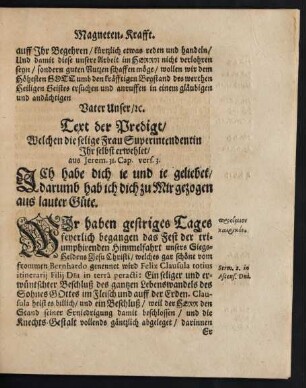 Magneten-Krafft.
auff Ihr Begehren / kürtzlich etwas reden und handeln /
Und damit diese unsere Arbeit im HErrn nicht verlohren
seyn / sondern guten Nutzen schaffen möge / wollen wir dem
Höchsten GOTT umb den kräfftigen Beystand des werthen
Heiligen Geistes ersuchen und anruffen in einem gläubigen
und andächtigen
Vater Unser / ꝛc.
Text der Predigt /
Welchen die selige Frau Superintendentin
Ihr selbst erwehlet /
aus Jerem. 31. Cap. vers. 3.
ICh habe dich ie und ie geliebet /
darumb hab ich dich zu Mir gezogen
aus lauter Güte.
WIr haben gestriges Tages
feyerlich begangen das Fest der tri-
umphirenden Himmelfahrt unsers Sieges-
Heldens JEsu Christi / welches gar schöne vom
frommen Bernhardo genennet wird Felix Clausula totius
itinerarij Filij Dĩa in terrâ peracti: Ein seliger und er-
wünschter Beschluß des gantzen Lebenswandels des
Sohnes GOttes im Fleisch und auff der Erden. Clau-
sula heist es billich / und ein Beschluß / weil der HErr den
Stand seiner Erniedrigung damit beschlossen / und die
Knechts-Gestalt vollends gäntzlich abgeleget / darinnen
Er
Serm. 2. in
Ascens. Dni.